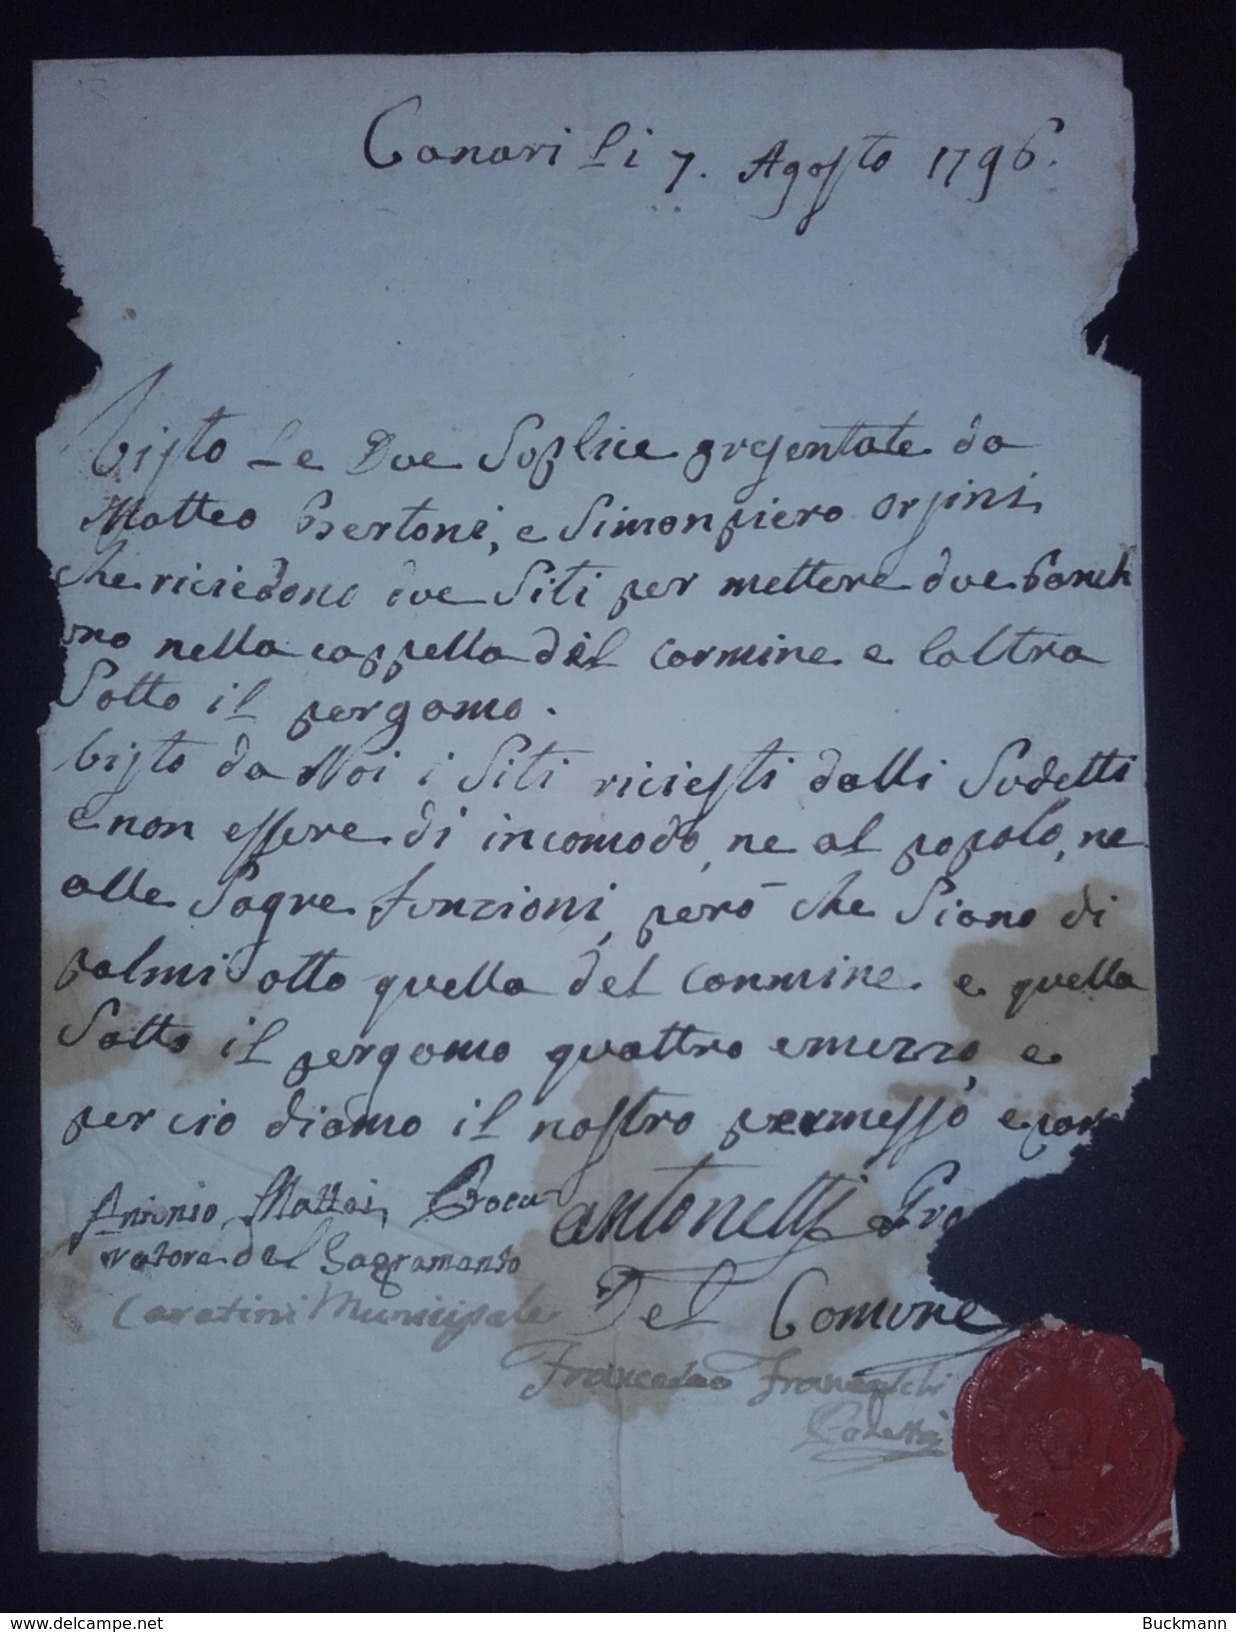 Canari Li 7. Agosto 1796.
Visto Le Due Suplice presentate da
Matteo Bertoni, e Simonpiero Orsini
che riciedono due Siti per mettere due banch
uno nella cappella del Carmine e laltra
Sotto il pergamo.
Visto da Noi i Siti riciesti dalli Sudetti
e non essere di incomodo, ne al popolo, ne
alle Sagre funzioni, però che Siano di
palmi otto quella del Carmine e quella
Sotto il pergamo quattro emezzo, e
per ciò diamo il nostro permesso e
Antonio Mattei, Procu
ratore del Sagramento
Antonetti Pro
Del Comune
Caratini Municipale
Francesco Franceschi
www.delcampe.net
Buckmann